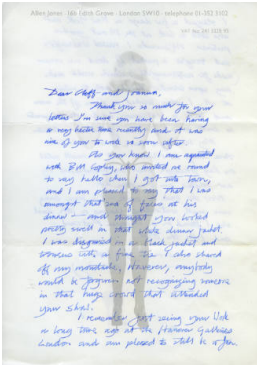 Allen Jones · 16a Edith Grove · London SW10 · telephone 01-352
VAT No.
Dear and Joanna,
Thank you so much for your
letter. I'm sure you have been having
a very hectic time recently and it was
nice of you to write so soon after.
As you know I am acquainted
with Bill Copley, who invited me round
to say hello when I got into town,
and I am pleased to say that I was
amongst that sea of faces at his
dinner — and thought you looked
pretty swell in that white dinner jacket.
I was disguised in a black jacket and
trousers with a fine tie. I also shaved
off my moustache, however, anybody
would be forgiven not recognising someone
in that huge crowd that attended
your show.
I remember first seeing your work
a long time ago at the Hanover Galleries
London and am pleased to still be a fan.